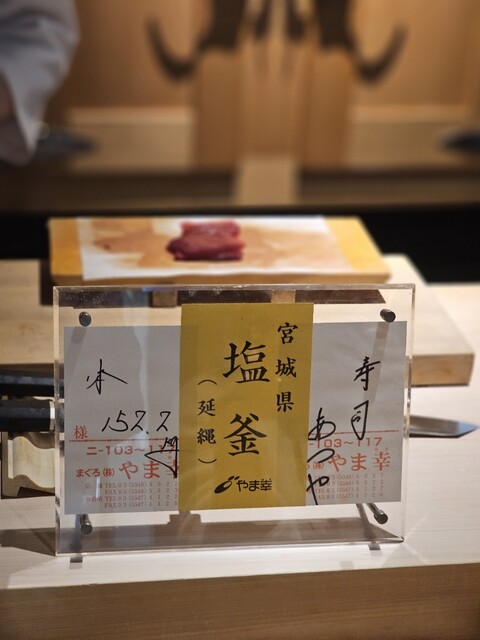 寿司
あつや
宮城県
塩釜
（延縄）
やま幸
本
157.2
様
ニ-103〜
まぐろ(株) やま幸
-103〜117
やま幸